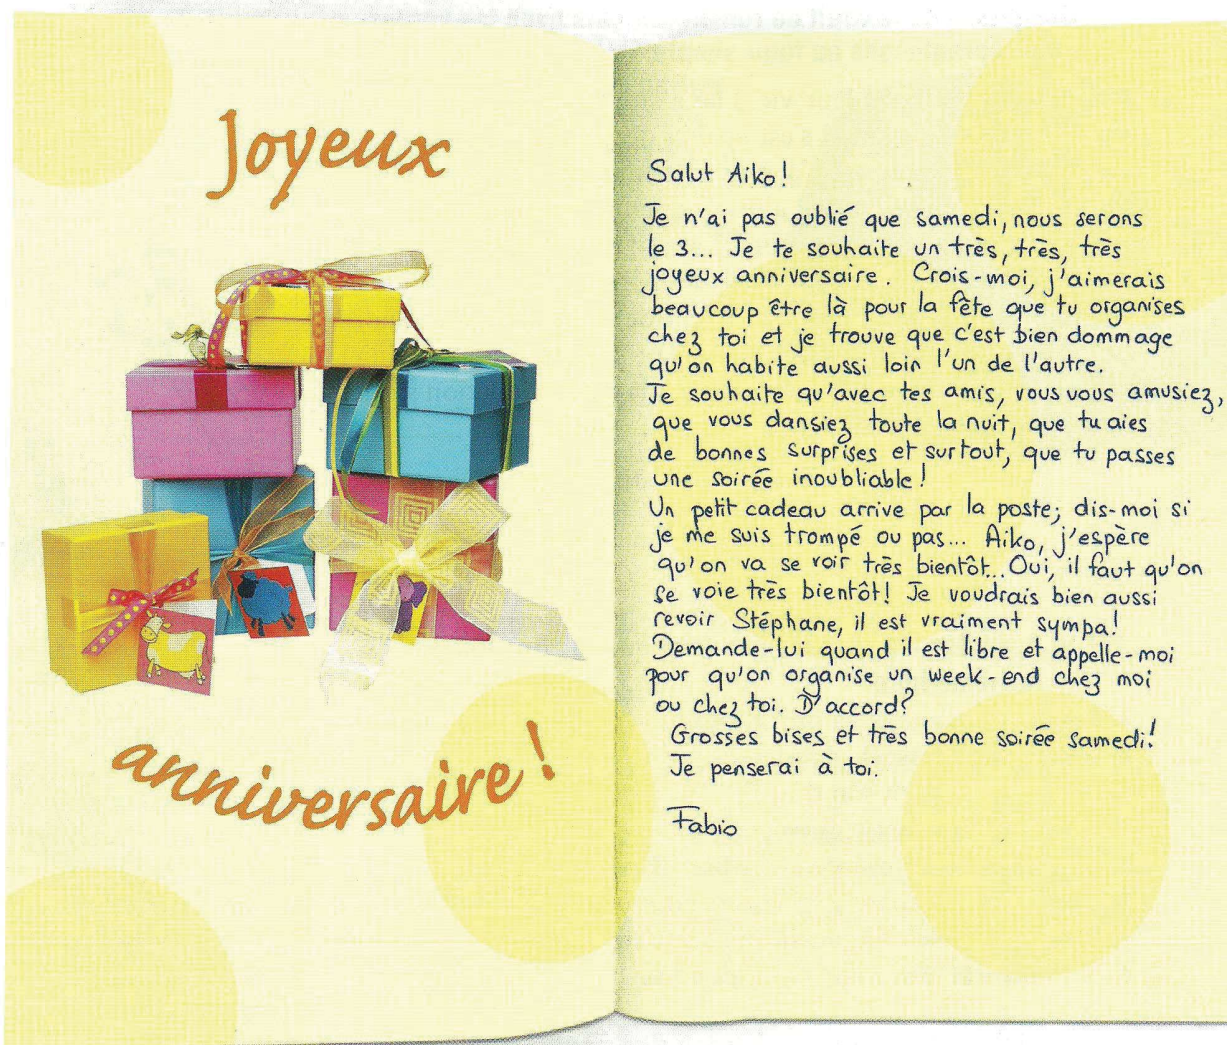 Joyeux
anniversaire !
Salut Aiko!
Je n'ai pas oublié que samedi, nous serons
le 3... Je te souhaite un très, très, très
joyeux anniversaire. Crois-moi, j'aimerais
beaucoup être là pour la fête que tu organises
chez toi et je trouve que c'est bien dommage
qu'on habite aussi loin l'un de l'autre.
Je souhaite qu'avec tes amis, vous vous amusiez,
que vous dansiez toute la nuit, que tu aies
de bonnes surprises et surtout, que tu passes
une soirée inoubliable!
Un petit cadeau arrive par la poste; dis-moi si
je me suis trompé ou pas... Aiko, j'espère
qu'on va se voir très bientôt... Oui, il faut qu'on
se voie très bientôt! Je voudrais bien aussi
revoir Stéphane, il est vraiment sympa!
Demande-lui quand il est libre et appelle-moi
pour qu'on organise un week-end chez moi
ou chez toi. D'accord?
Grosses bises et très bonne soirée samedi!
Je penserai à toi.
Fabio